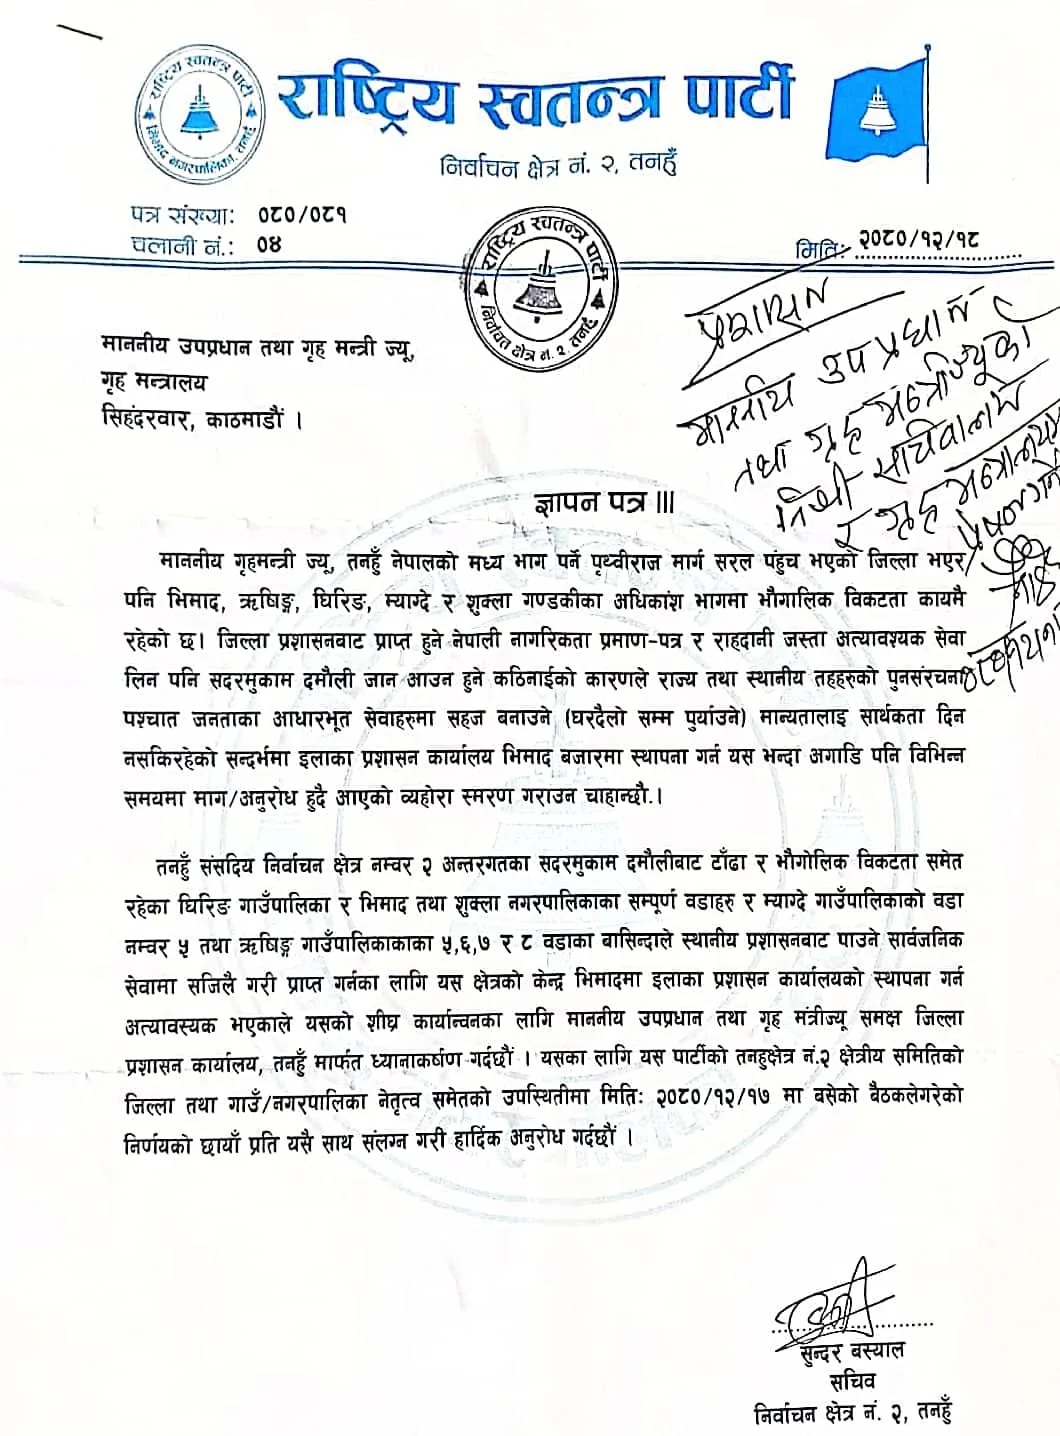 राष्ट्रिय स्वतन्त्र पार्टी
भिमाद नगरपालिका, तनहुँ
राष्ट्रिय स्वतन्त्र पार्टी
निर्वाचन क्षेत्र नं. २, तनहुँ
पत्र संख्या: ०८०/०८१
चलानी नं.: ०४
मिति:- २०८०/१२/१८
राष्ट्रिय स्वतन्त्र पार्टी
निर्वाचन क्षेत्र नं. २. तनहुँ
प्रशासन
माननीय उप प्रधान
तथा गृह मन्त्रीज्यूको
निजी सचिवालय
र गृह मन्त्रालयमा
माननीय उपप्रधान तथा गृह मन्त्री ज्यू,
गृह मन्त्रालय
सिहंदरवार, काठमाडौं ।
ज्ञापन पत्र |||
माननीय गृहमन्त्री ज्यू, तनहुँ नेपालको मध्य भाग पर्ने पृथ्वीराज मार्ग सरल पहुंच भएको जिल्ला भएर
पनि भिमाद, ऋषिङ्ग, घिरिङ, म्याग्दे र शुक्ला गण्डकीका अधिकांश भागमा भौगालिक विकटता कायमै
रहेको छ। जिल्ला प्रशासनवाट प्राप्त हुने नेपाली नागरिकता प्रमाण-पत्र र राहदानी जस्ता अत्यावश्यक सेवा
लिन पनि सदरमुकाम दमौली जान आउन हुने कठिनाईको कारणले राज्य तथा स्थानीय तहहरुको पुनसंरचना
पश्चात जनताका आधारभूत सेवाहरुमा सहज बनाउने (घरदैलो सम्म पुर्याउने) मान्यतालाइ सार्थकता दिन
नसकिरहेको सन्दर्भमा इलाका प्रशासन कार्यालय भिमाद बजारमा स्थापना गर्न यस भन्दा अगाडि पनि विभिन्न
समयमा माग/अनुरोध हुदै आएको व्यहोरा स्मरण गराउन चाहान्छौ.।
तनहुँ संसदिय निर्वाचन क्षेत्र नम्वर २ अन्तरगतका सदरमुकाम दमौलीबाट टाँढा र भौगोलिक विकटता समेत
रहेका घिरिङ गाउँपालिका र भिमाद तथा शुक्ला नगरपालिकाका सम्पूर्ण वडाहरु र म्याग्दे गाउँपालिकाको वडा
नम्वर ५ तथा ऋषिङ्ग गाउँपालिकाकाका ५,६,७ र ८ वडाका बासिन्दाले स्थानीय प्रशासनवाट पाउने सार्वजनिक
सेवामा सजिलै गरी प्राप्त गर्नका लागि यस क्षेत्रको केन्द्र भिमादमा इलाका प्रशासन कार्यालयको स्थापना गर्न
अत्यावस्यक भएकाले यसको शीघ्र कार्यान्वनका लागि माननीय उपप्रधान तथा गृह मंत्रीज्यू समक्ष जिल्ला
प्रशासन कार्यालय, तनहुँ मार्फत ध्यानाकर्षण गर्दछौं । यसका लागि यस पार्टीको तनहुक्षेत्र नं.२ क्षेत्रीय समितिको
जिल्ला तथा गाउँ/नगरपालिका नेतृत्व समेतको उपस्थितीमा मिति: २०८०/१२/१७ मा वसेको बैठकलेगरेको
निर्णयको छायाँ प्रति यसै साथ संलग्न गरी हार्दिक अनुरोध गर्दछौं ।
सुन्दर बस्याल
सचिव
निर्वाचन क्षेत्र नं. २, तनहुँ